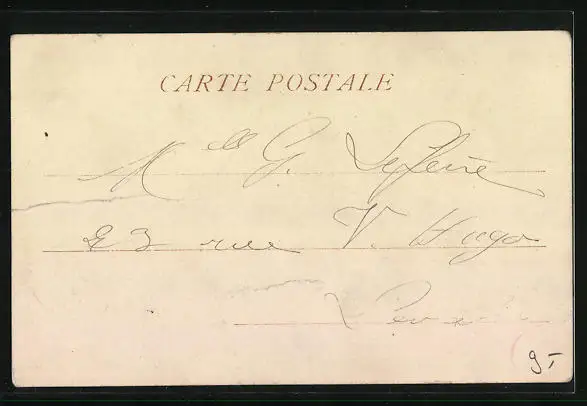 CARTE POSTALE
Melle G. Lefevre
23 rue V. Hugo
9,-